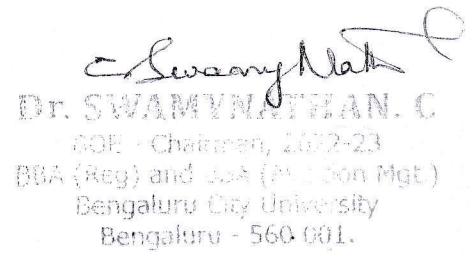 C. Swamy Nath
Dr. SWAMYNATHAN. C
BOE - Chairman, 2022-23
BBA (Reg) and BBA (Aviation Mgt.)
Bengaluru City University
Bengaluru - 560 001.